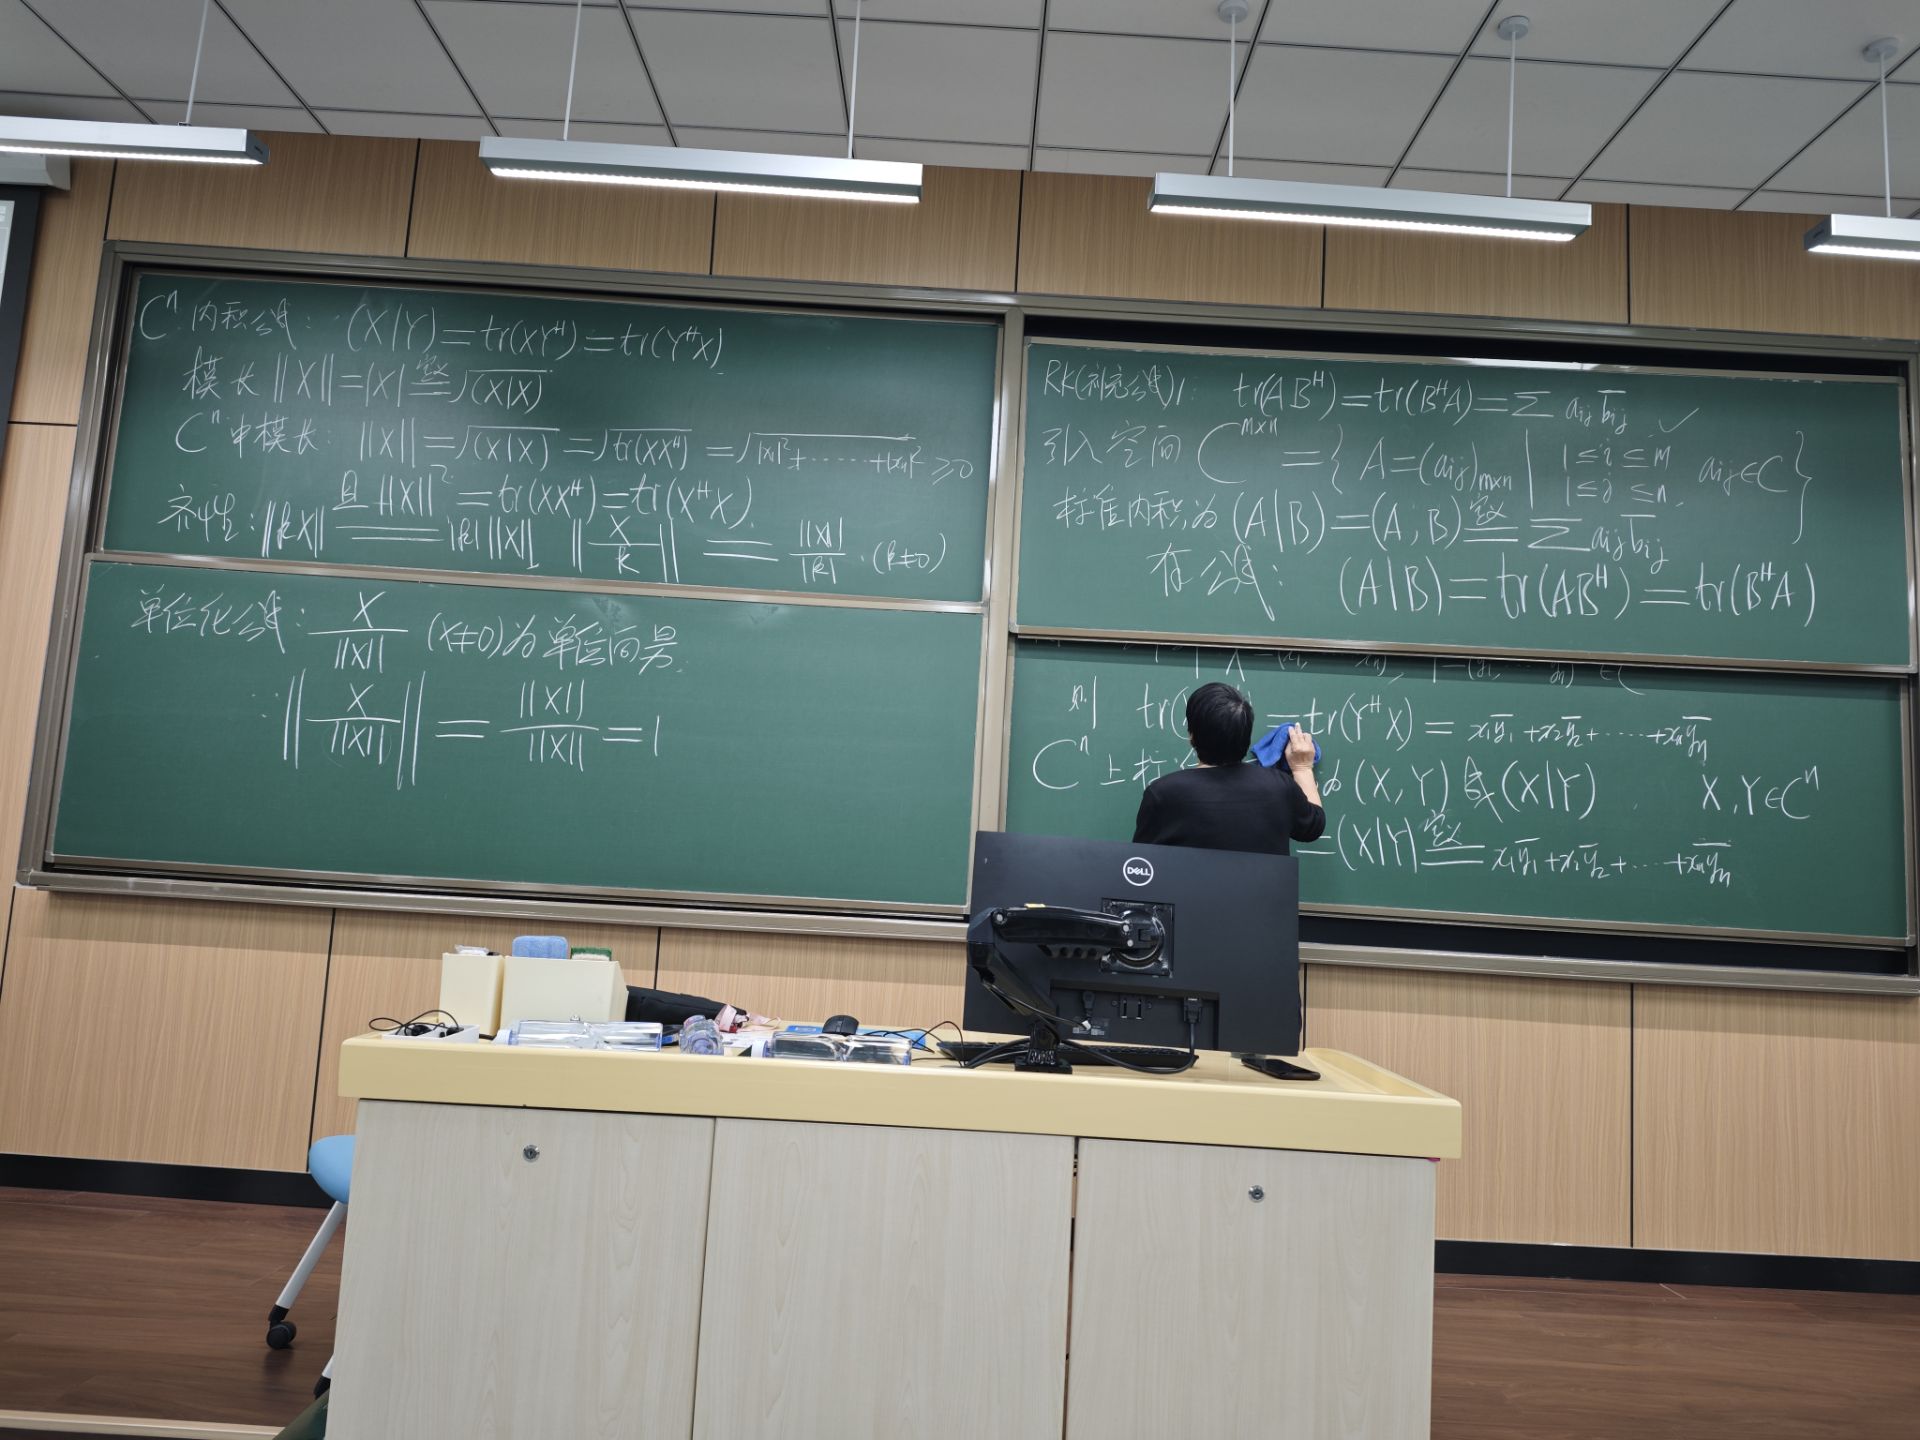 Cⁿ 内积公式: (X|Y)=tr(XYᴴ)=tr(YᴴX)
模长 ||X||=|X| 定义 √(X|X)
Cⁿ中模长: ||X||=√(X|X)=√tr(XXᴴ)=√|x₁|²+······+|xₙ|² ≥0
且 ||X||²=tr(XXᴴ)=tr(XᴴX).
齐性: ||kX||=|k| ||X||, ||X/k||=||X||/|k|. (k≠0)
单位化公式: X/||X|| (X≠0)为单位向量.
∵ || X/||X|| || = ||X||/||X|| =1
RK(补充公式)1: tr(ABᴴ)=tr(BᴴA)=∑ aᵢⱼ b̅ᵢⱼ ✓
引入空间 Cᵐˣⁿ={A=(aᵢⱼ)ₘₓₙ | 1≤i≤m, 1≤j≤n, aᵢⱼ∈C}
标准内积为 (A|B)=(A,B) 定义 ∑ aᵢⱼ b̅ᵢⱼ
有公式: (A|B)=tr(ABᴴ)=tr(BᴴA)
则 tr(X =tr(YᴴX)= x₁y̅₁+x₂y̅₂+·····+xₙy̅ₙ
Cⁿ上标 为 (X,Y) 或 (X|Y) . X,Y∈Cⁿ
=(X|Y) 定义 x₁y̅₁+x₂y̅₂+····+xₙy̅ₙ
DELL